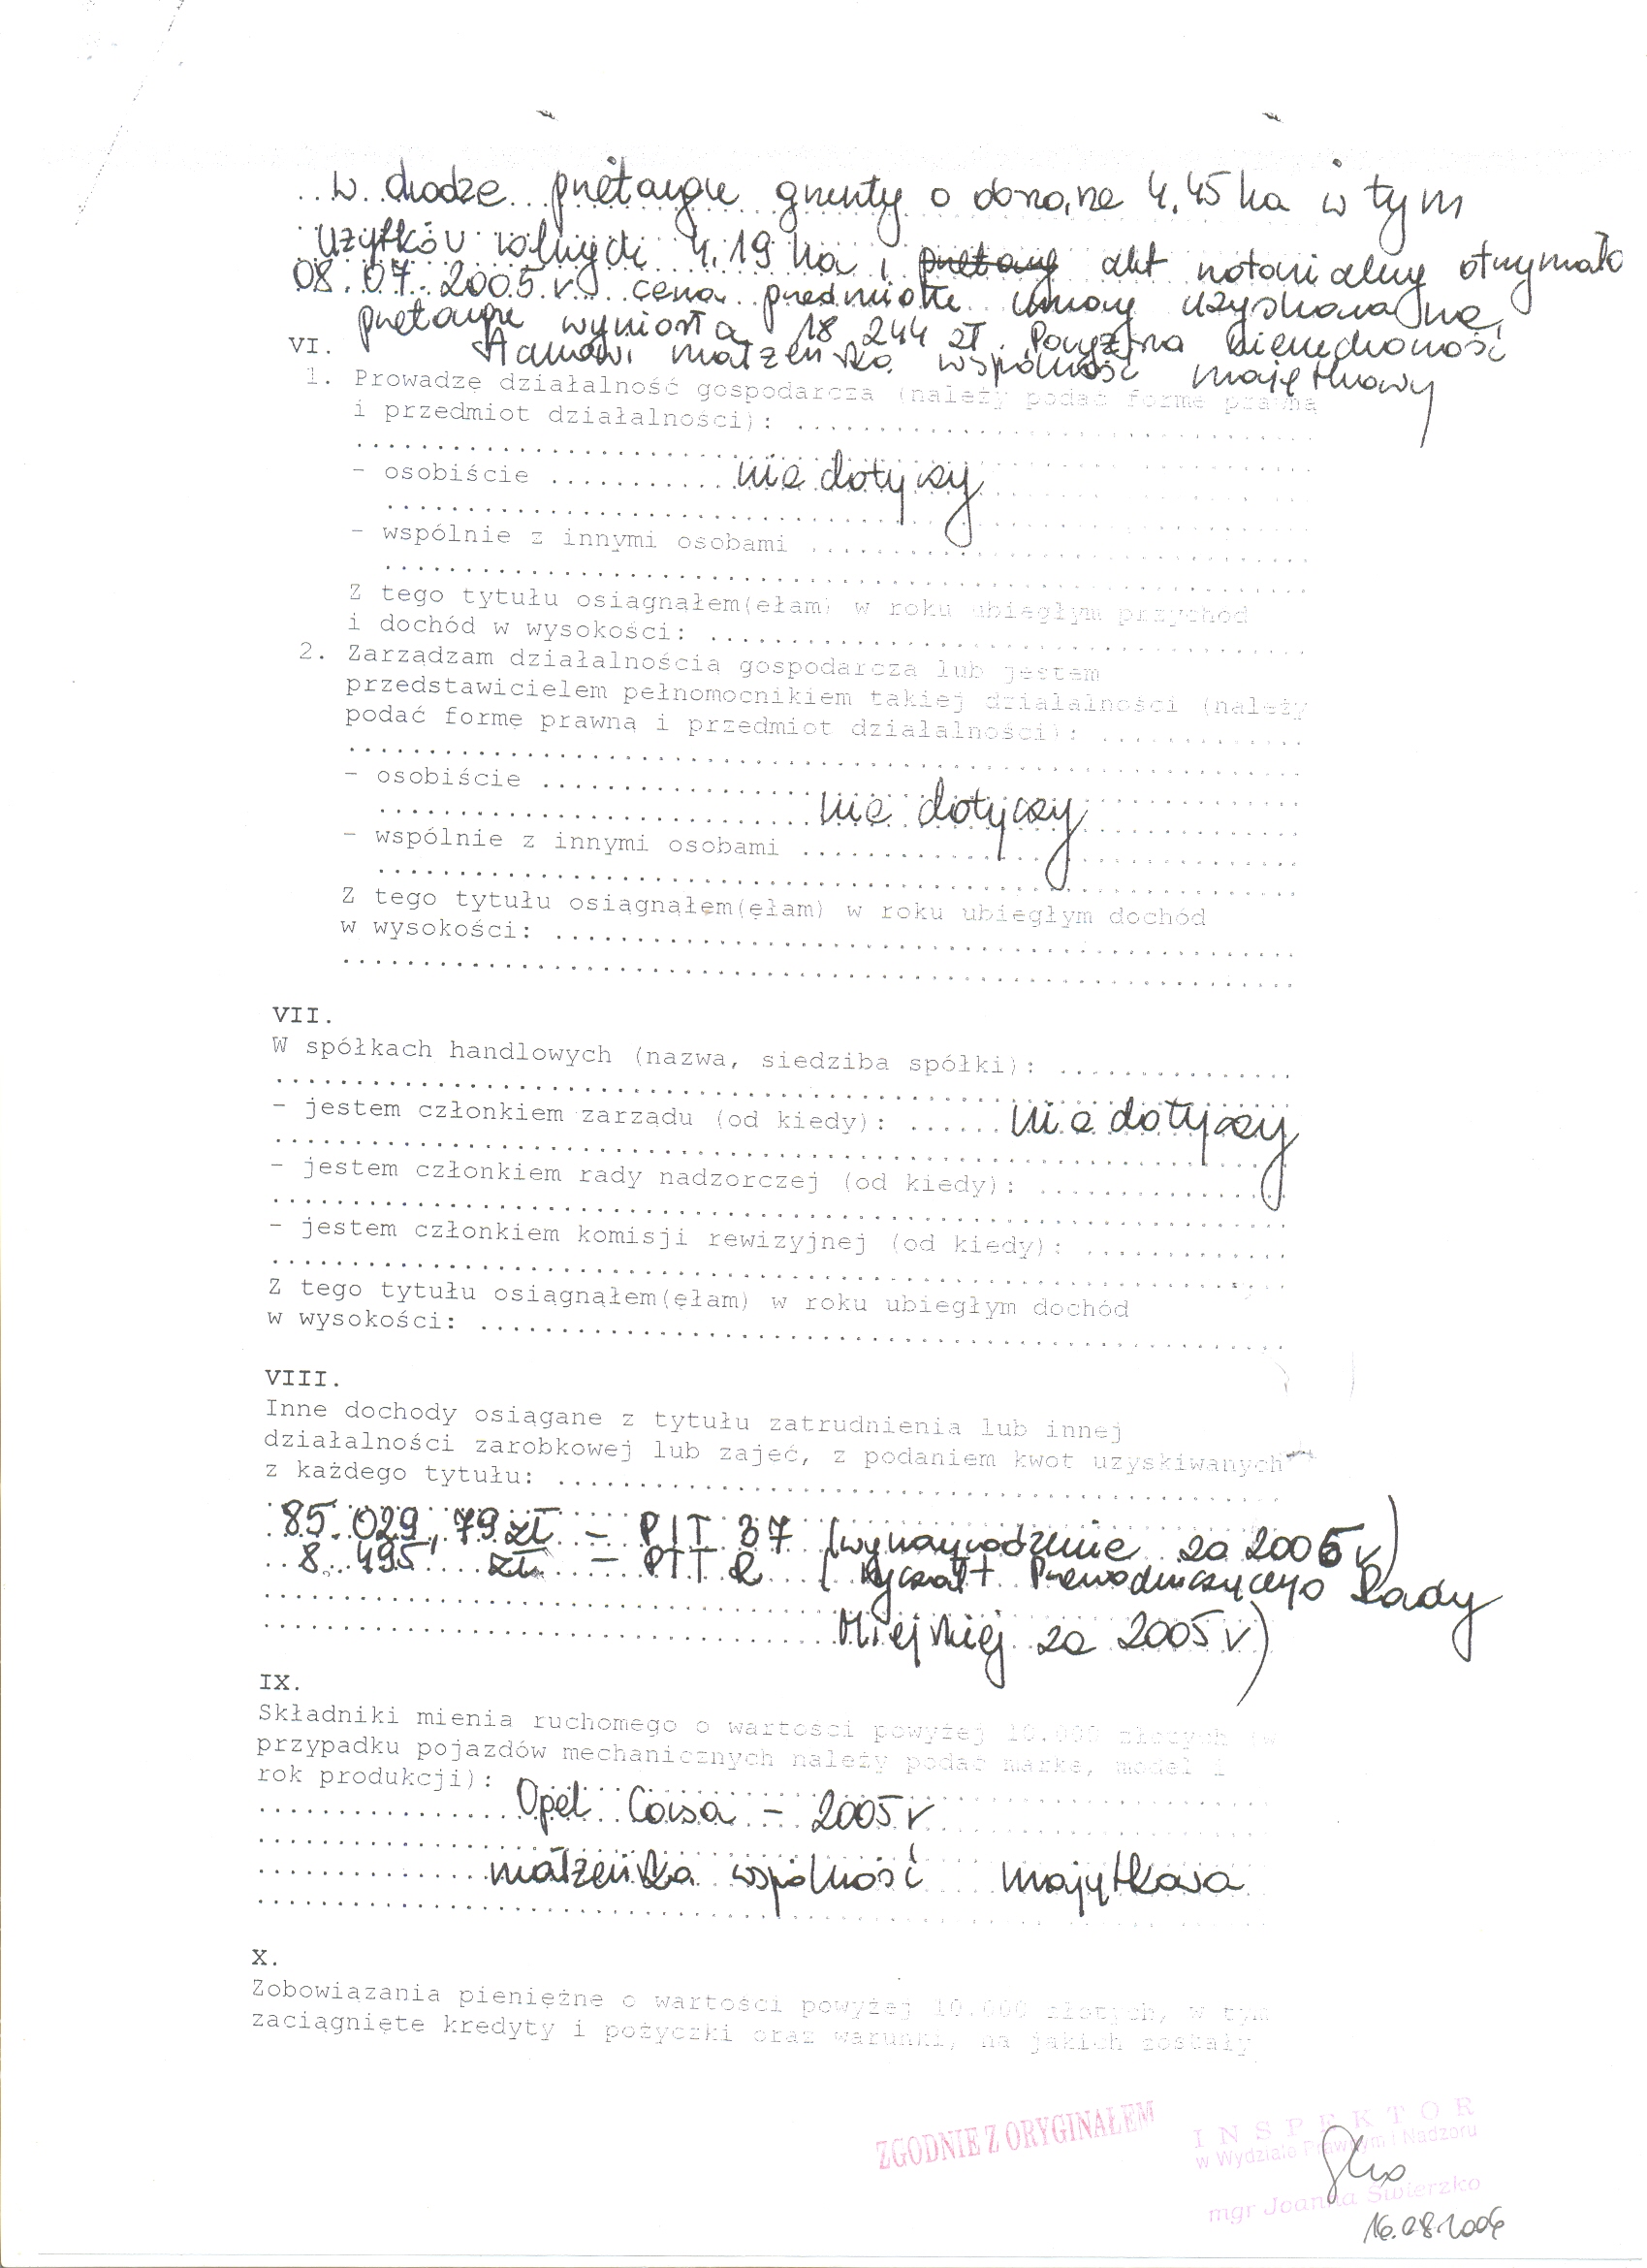 w drodze przetargu grunty o obszarze 4,45 ha w tym
użytków rolnych 4,19 ha i przetarg akt notarialny otrzymało
08.07.2005 r. cena przedmiotu umowy uzyskana na
przetargu wyniosła 18 244 zł. Powyższa nieruchomość
VI. stanowi małżeńską wspólność majątkową
1. Prowadzę działalność gospodarczą (należy podać formę prawną
i przedmiot działalności): ........................................
........................................
- osobiście ............ nie dotyczy ............
........................................
- wspólnie z innymi osobami ........................................
........................................
Z tego tytułu osiągnąłem(ęłam) w roku ubiegłym przychód
i dochód w wysokości: ........................................
2. Zarządzam działalnością gospodarczą lub jestem
przedstawicielem pełnomocnikiem takiej działalności (należy
podać formę prawną i przedmiot działalności): .............
........................................
- osobiście ........................................
............ nie dotyczy ............
- wspólnie z innymi osobami ........................................
........................................
Z tego tytułu osiągnąłem(ęłam) w roku ubiegłym dochód
w wysokości: ........................................
........................................
VII.
W spółkach handlowych (nazwa, siedziba spółki): ...............
........................................
- jestem członkiem zarządu (od kiedy): ...... nie dotyczy
........................................
- jestem członkiem rady nadzorczej (od kiedy): ................
........................................
- jestem członkiem komisji rewizyjnej (od kiedy): .............
........................................
Z tego tytułu osiągnąłem(ęłam) w roku ubiegłym dochód
w wysokości: ........................................
VIII.
Inne dochody osiągane z tytułu zatrudnienia lub innej
działalności zarobkowej lub zajęć, z podaniem kwot uzyskiwanych
z każdego tytułu: ........................................
85.029,79 zł - PIT 37 (wynagrodzenie za 2005 r)
8.495 zł - PIT R (ryczałt Przewodniczącego Rady
Miejskiej za 2005 r)
IX.
Składniki mienia ruchomego o wartości powyżej 10.000 złotych (w
przypadku pojazdów mechanicznych należy podać markę, model i
rok produkcji): ........................................
Opel Corsa - 2005 r
........................................
małżeńska wspólność majątkowa
........................................
X.
Zobowiązania pieniężne o wartości powyżej 10.000 złotych, w tym
zaciągnięte kredyty i pożyczki oraz warunki, na jakich zostały
ZGODNIE Z ORYGINAŁEM
INSPEKTOR
w Wydziale Prawnym i Nadzoru
mgr Joanna Świerzko
16.08.2006